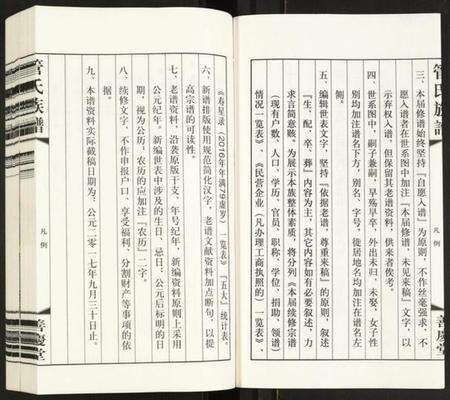 三、本届修谱始终坚持『自愿入谱』为原则，不作丝毫强求，不
愿入谱者在世系图中加注『本届修谱，未见来稿』文字，以
示弃权入谱，但保留其老谱资料，供来者俟考。
四、世系图中，嗣子兼嗣，早殇早卒，外出未归，未娶，女子性
别均加注谱名下方，别名、字号、徙居地名均加注在谱名左
侧。
五、编辑世表文字，坚持『依据老谱，尊重来稿』的原则，叙述
『生，配，卒，葬』内容为主，其它内容如有必要叙述，力
求言简意赅，为展示本族整体素质，将分列《本届续修宗谱
（现有户数、人口、学历、官员、职称、学位、捐助、领谱）
情况一览表》、《民营企业（凡办理工商执照的）一览表》、
《寿星录（2016年年满79虚岁）一览表》『五大』统计表。
六、新谱排版使用规范简化汉字，老谱文献资料加点断句，以提
高宗谱的可读性。
七、老谱资料，沿袭原版干支、年号纪年，新编资料原则上采用
公元纪年。新编世表中涉及的生日、忌日：公元后标明的日
期，视为公历，农历的应加注『农历』二字。
八、续修文字，不作申报户口、享受福利，分割财产等事项的依
据。
九、本谱资料实际截稿日期为：公元二零一七年九月三十日止。
管氏族譜
凡例
善慶堂
管氏族譜
凡例
善慶堂